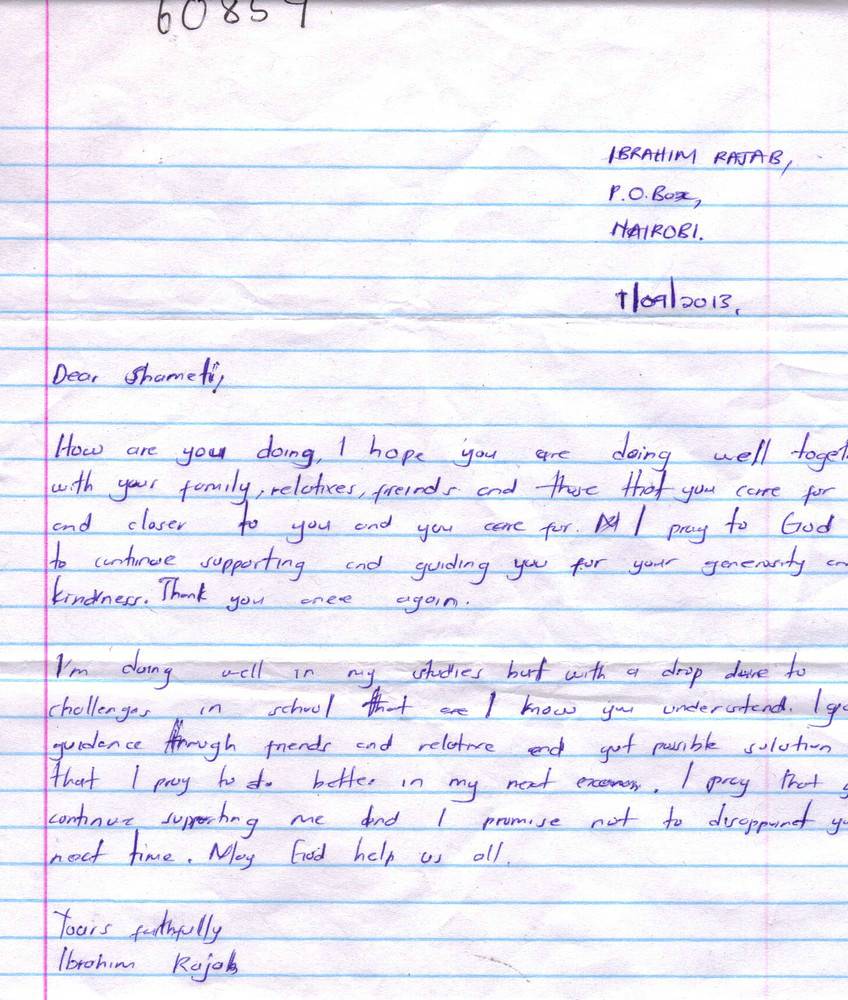 60859
IBRAHIM RAJAB,
P.O.Box,
NAIROBI.
1/09/2013.
Dear Shameti,
How are you doing, I hope you are doing well toget
with your family, relatives, freinds and those that you care for
and closer to you and you care for. I pray to God
to continue supporting and guiding you for your generosity an
kindness. Thank you once again.
I'm doing well in my studies but with a drop due to
challenges in school that are I know you understand. I go
guidance through friends and relative and got possible solution
that I pray to do better in my next exams. I pray that y
continue supporting me and I promise not to disappoint yo
next time. May God help us all.
Yours faithfully
Ibrahim Rajab